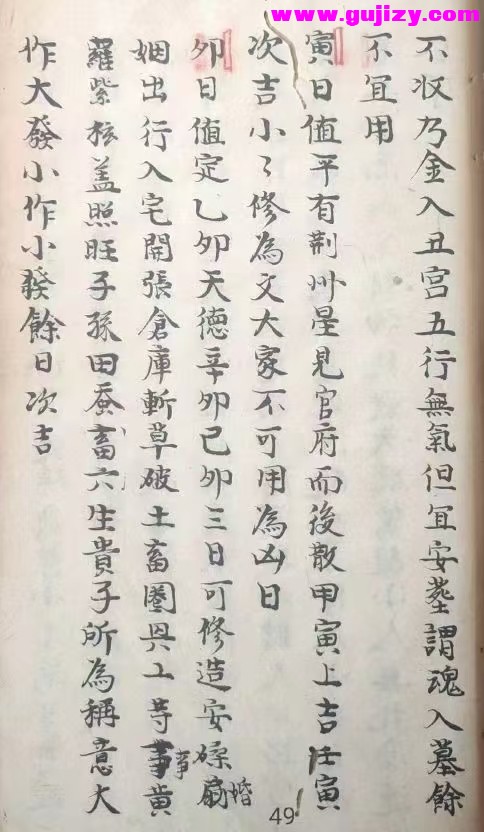 www.gujizy.com
不収乃金入丑宫五行無氣但宜安塟謂魂入墓餘
不宜用
寅日值平有荆州星見官府而後散甲寅上吉壬寅
次吉小〻修為文大家不可用為凶日
夘日值定乙夘天德辛夘己夘三日可修造安磉扇婚
姻出行入宅開張倉庫斬草破土畜圈興工等事黄
羅紫梹盖照旺子孫田蚕畜六生貴子所為稱意大
作大發小作小發餘日次吉
49